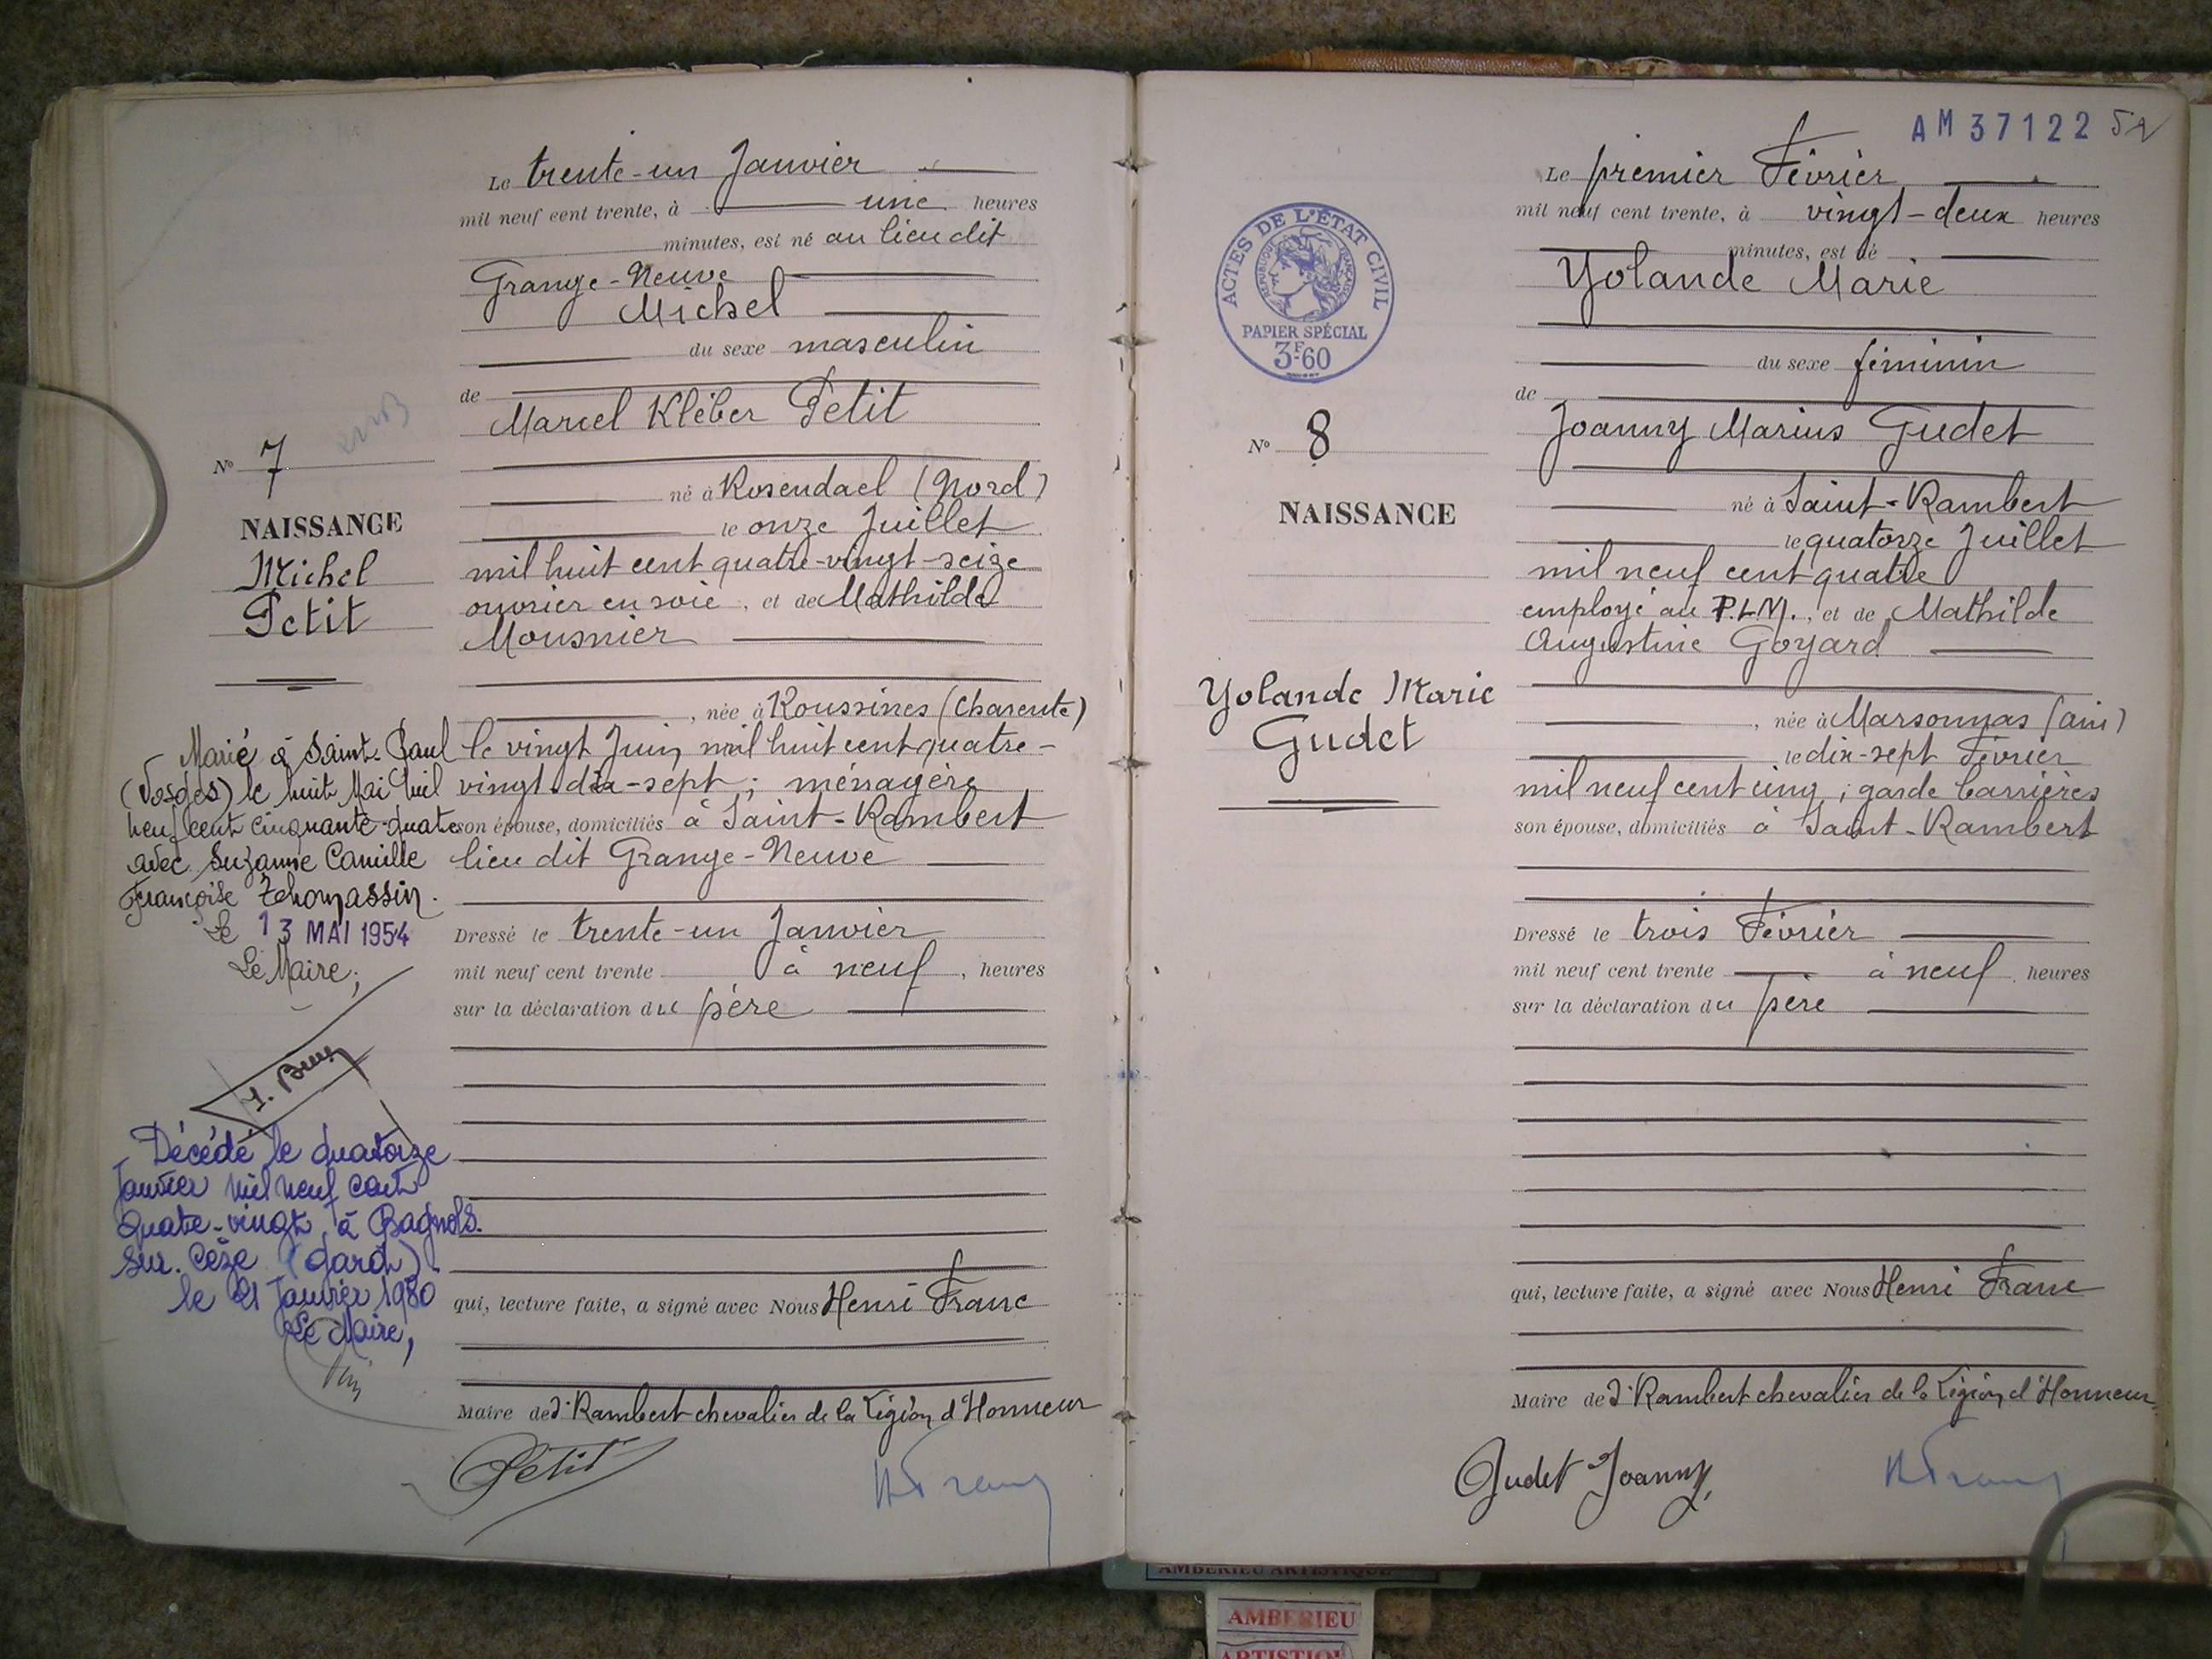 Le trente-un Janvier
mil neuf cent trente, à une heures
minutes, est né au lieu dit
Grange-Neuve
Michel
du sexe masculin
de
Marcel Kléber Petit
né à Rosendael (Nord)
le onze Juillet
mil huit cent quatre-vingt-seize
ouvrier en soie, et de Mathilde
Mousnier
, née à Roussines (Charente)
le vingt Juin mil huit cent quatre-
vingt dix-sept; ménagère
son épouse, domiciliés à Saint-Rambert
lieu dit Grange-Neuve
Dressé le trente-un Janvier
mil neuf cent trente à neuf, heures
sur la déclaration du père
qui, lecture faite, a signé avec Nous Henri Franc
Maire de St Rambert chevalier de la Légion d'Honneur
Petit
HFranc
No 7
NAISSANCE
Michel
Petit
Marié à Saint-Paul
(Vosges) le huit Mai mil
neuf cent cinquante-quatre
avec Suzanne Camille
Françoise
Le 13 MAI 1954
Le Maire;
Décédé le quatorze
Janvier mil neuf cent
quatre-vingt à Bagnols.
sur. Cèze (Gard).
le 21 Janvier 1980
Le Maire,
AM 37122 52
Le premier Février
mil neuf cent trente, à vingt-deux heures
minutes, est né
Yolande Marie
du sexe féminin
de
Joanny Marius Gudet
né à Saint-Rambert
le quatorze Juillet
mil neuf cent quatre
employé au P.L.M., et de Mathilde
Augustine Goyard
, née à Marsonnas (Ain)
le dix-sept Février
mil neuf cent cinq; garde barrières
son épouse, domiciliés à Saint-Rambert
Dressé le trois Février
mil neuf cent trente à neuf heures
sur la déclaration du père
qui, lecture faite, a signé avec Nous Henri Franc
Maire de St Rambert chevalier de la Légion d'Honneur
Gudet Joanny,
HFranc
ACTES DE L'ÉTAT CIVIL
RÉPUBLIQUE FRANÇAISE
PAPIER SPÉCIAL
3F60
No 8
NAISSANCE
Yolande Marie
Gudet
AMBERIEU ARTISTIQUE
AMBERIEU